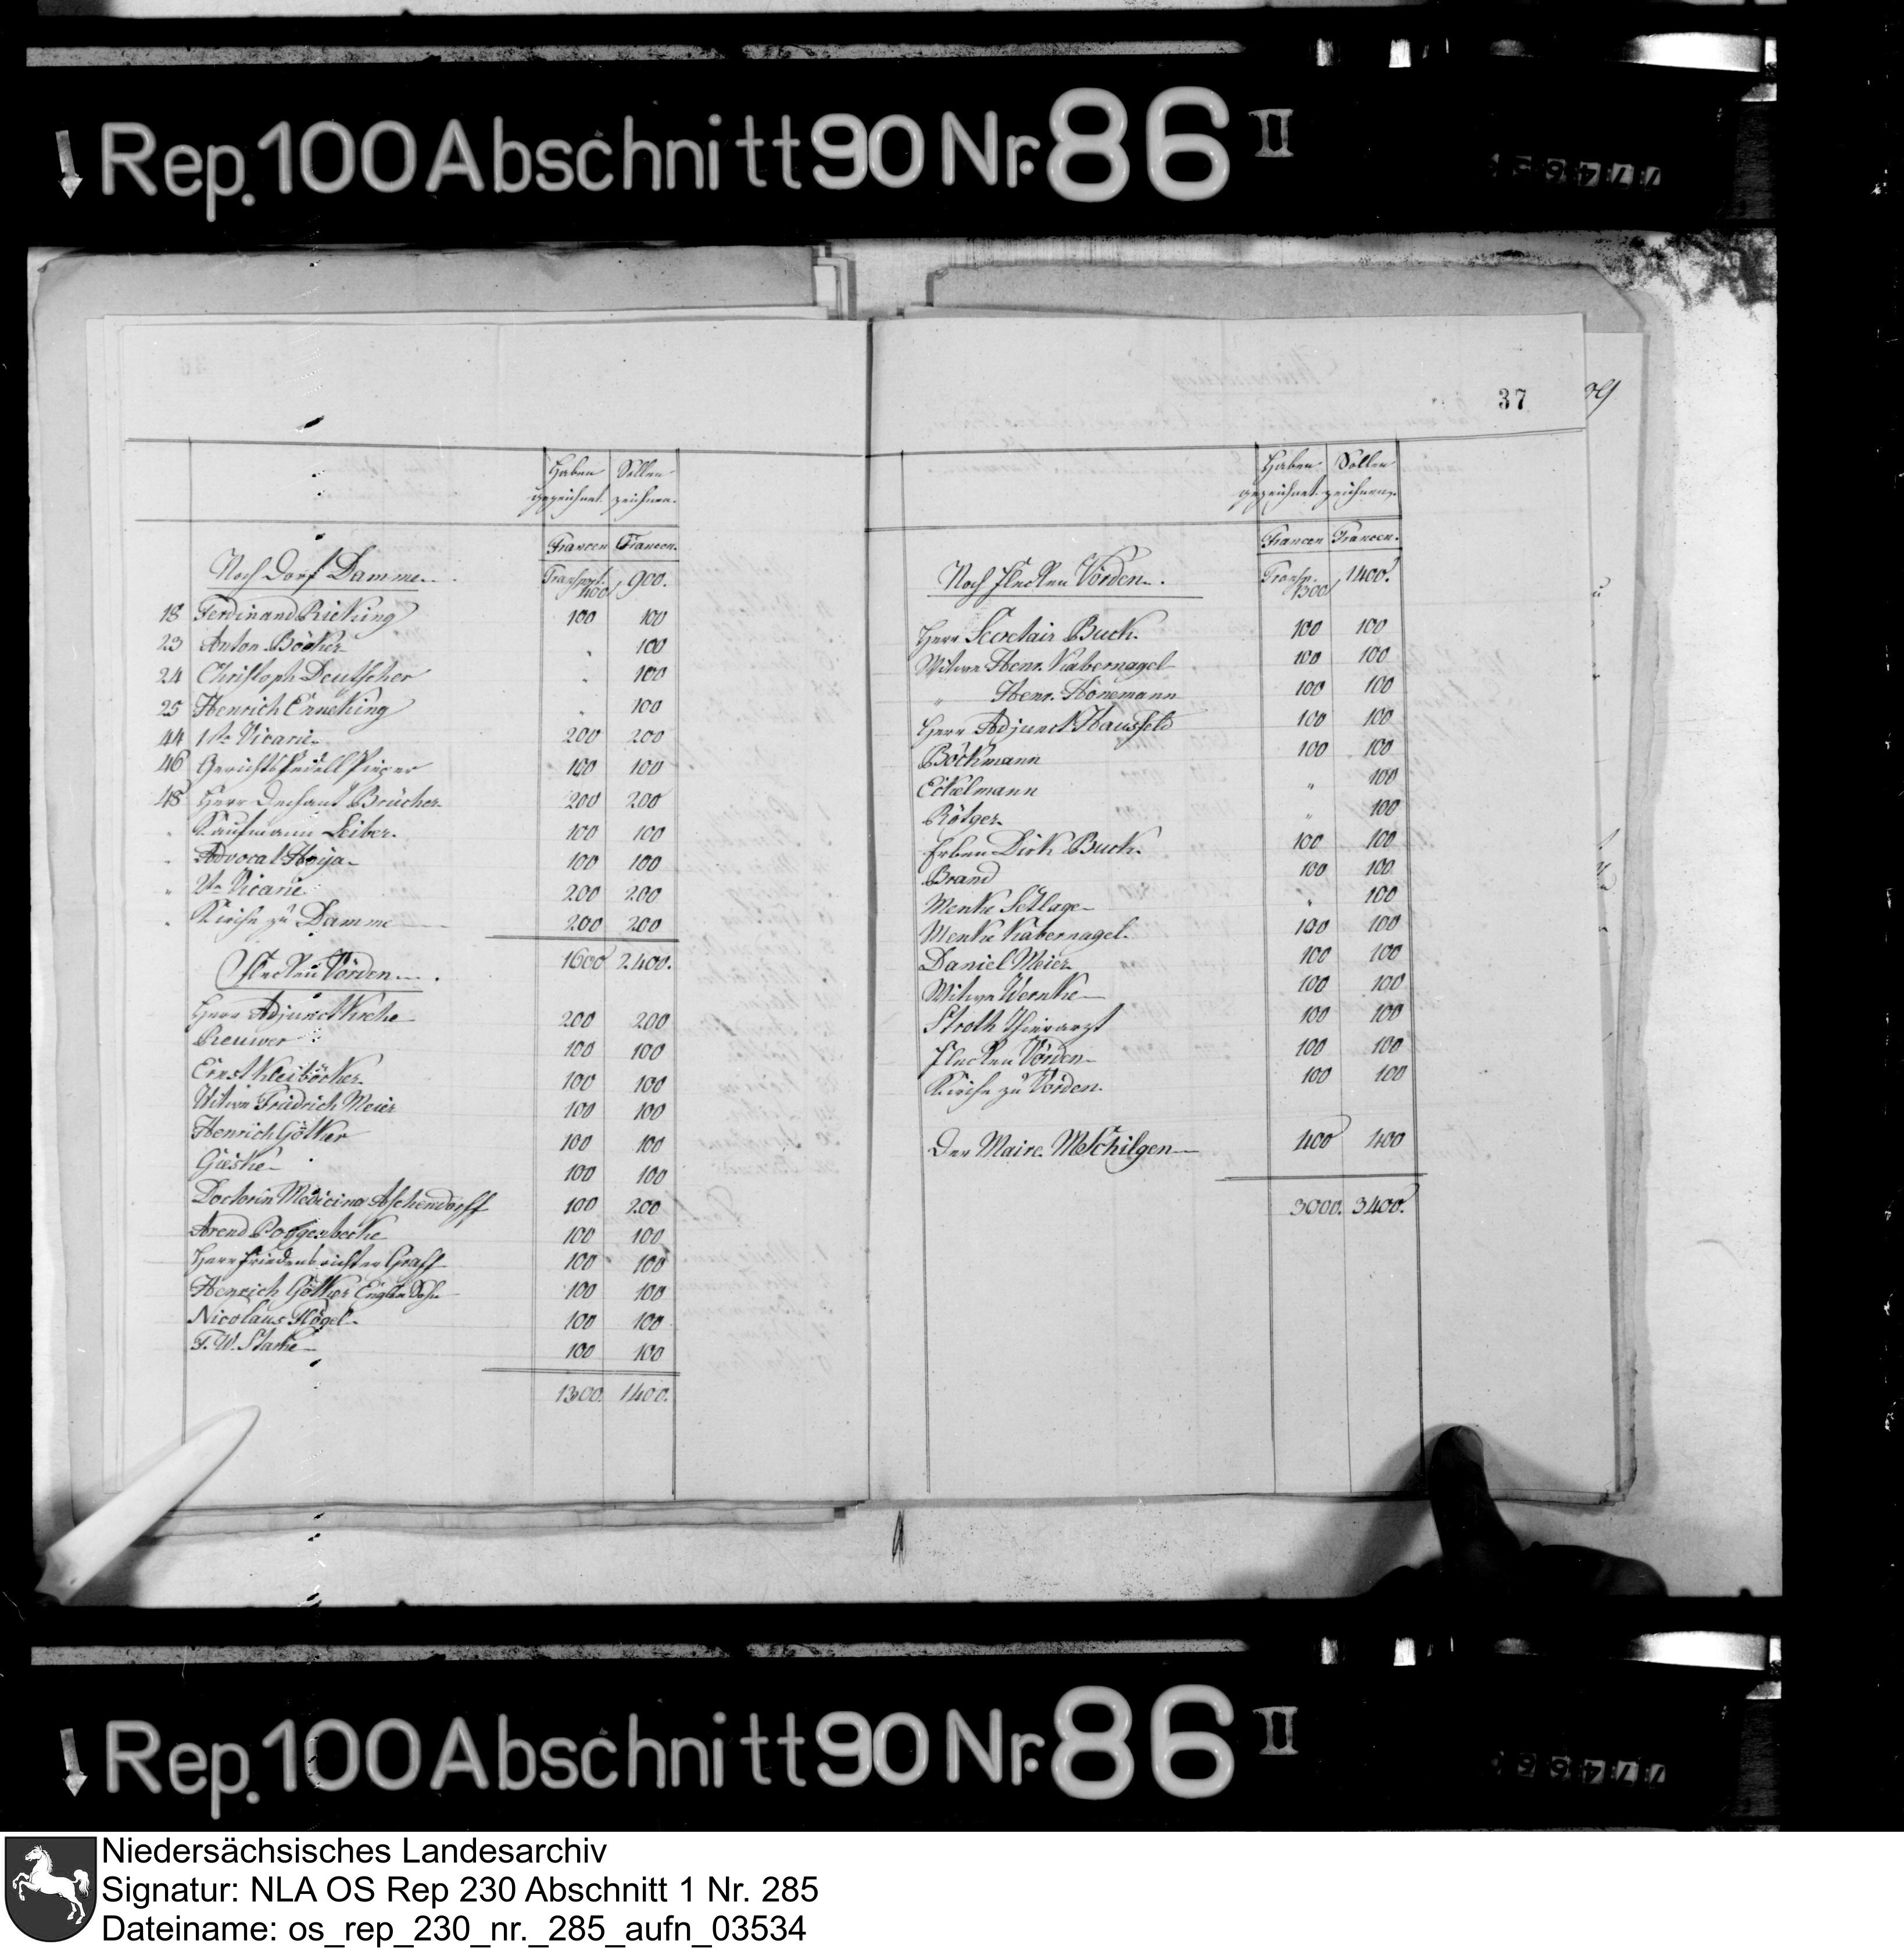 Rep. 100 Abschnitt 90 Nr. 86 II
Haben gezeichnet. Sollen zeichnen.
Francen Francen.
Noch Dorf Damme. Transport. 400 900.
18 Ferdinand Ricking 100 100
23 Anton Böcker 100
24 Christoph Deutscher 100
25 Henrich Enneking 100
44 1te Vicarie 200 200
46 Gerichts Pedell Pieper 100 100
48 Herr Dechant Brücher 200 200
" Kaufmann Leiber. 100 100
" Advocat Hoya 100 100
" 2te Vicarie 200 200
" Kirche zu Damme 200 200
1600 2400.
Flecken Vörden.
Herr Adjunct Kreke 200 200
Breuwer 100 100
Ernst Kleiböcker 100 100
Witwe Friedrich Meier 100 100
Henrich Götker 100 100
Gieske 100 100
Doctorin Medicina Aschendorff 100 200
Arend Poggenbecke 100 100
Herr Friedensrichter Graff 100 100
Henrich Götker Englen Sohn 100 100
Nicolaus Flögel 100 100
F. W. Starke 100 100
1300. 1400.
37
39
Haben gezeichnet. Sollen zeichnen.
Francen Francen.
Noch Flecken Vörden. Transp. 1300 1400.
Herr Secretair Buck. 100 100
Witwe Henr. Kabernagel 100 100
" Henr. Hönemann 100 100
Herr Adjunct Hausfeld 100 100
Böckmann 100 100
Eckelmann " 100
Rötger " 100
Erben Dirk Buck. 100 100
Brand 100 100
Menke Setlage " 100
Menke Kabernagel. 100 100
Daniel Meier 100 100
Witwe Wernke 100 100
Stroth Thierarzt 100 100
Flecken Vörden 100 100
Kirche zu Vörden. 100 100
Der Maire. M Schilgen 400 400
3000. 3400.
Rep. 100 Abschnitt 90 Nr. 86 II
Niedersächsisches Landesarchiv
Signatur: NLA OS Rep 230 Abschnitt 1 Nr. 285
Dateiname: os_rep_230_nr._285_aufn_03534